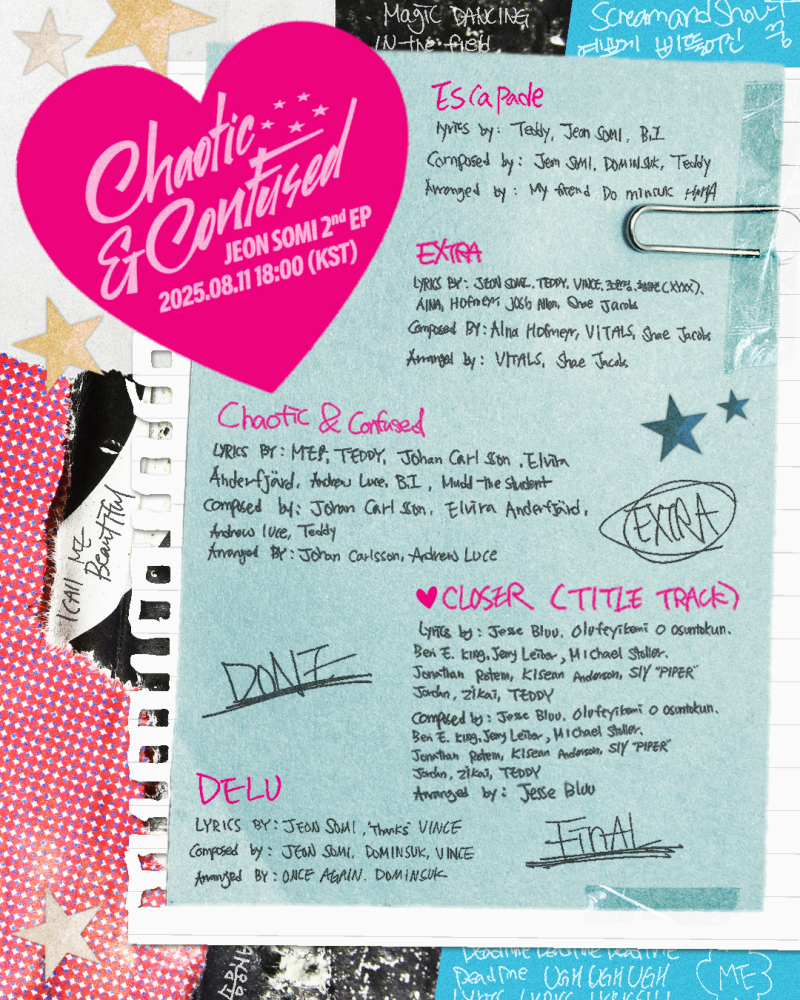 Magic DANCING
IN the field
Screamandshout
예쁘게 삐뚤어진
Chaotic
& Confused
JEON SOMI 2nd EP
2025.08.11 18:00 (KST)
Escapade
Lyrics by: Teddy, Jeon SOMI, B.I
Composed by: Jeon SOMI, DOMINSUK, Teddy
Arranged by: My friend Do minsuk HAHA
EXTRA
LYRICS BY: JEON SOMI, TEDDY, VINCE, (XYXX),
AINA, Hofmeyr, Josh Allen, Shae Jacobs
Composed BY: Aina Hofmeyr, VITALS, Shae Jacobs
Arranged by: VITALS, Shae Jacobs
Chaotic & Confused
LYRICS BY: MEP, TEDDY, Johan Carlsson, Elvira
Anderfjärd, Andrew Luce, B.I, Mudd the student
Composed by: Johan Carlsson, Elvira Anderfjärd,
Andrew luce, Teddy
Arranged BY: Johan Carlsson, Andrew Luce
EXTRA
I CAll ME
Beautiful
CLOSER (TITLE TRACK)
Lyrics by: Jesse Bluu, Olufeyikemi O Osuntokun,
Ben E. king, Jerry Leiber, Michael Stoller,
Jonathan Rotem, Kisean Anderson, SlY "PIPER"
Jordan, Zikai, TEDDY
Composed by: Jesse Bluu, Olufeyikemi O Osuntokun,
Ben E. king, Jerry Leiber, Michael Stoller,
Jonathan Rotem, Kisean Anderson, SlY "PIPER"
Jordan, Zikai, TEDDY
Arranged by: Jesse Bluu
DONE
DELU
LYRICS BY: JEON SOMI, "Thanks" VINCE
Composed by: JEON SOMI, DOMINSUK, VINCE
Arranged BY: ONCE AGAIN. DOMINSUK
FinAL
Deadline Deadline Deadline
Deadline UGH UGH UGH
(ME)